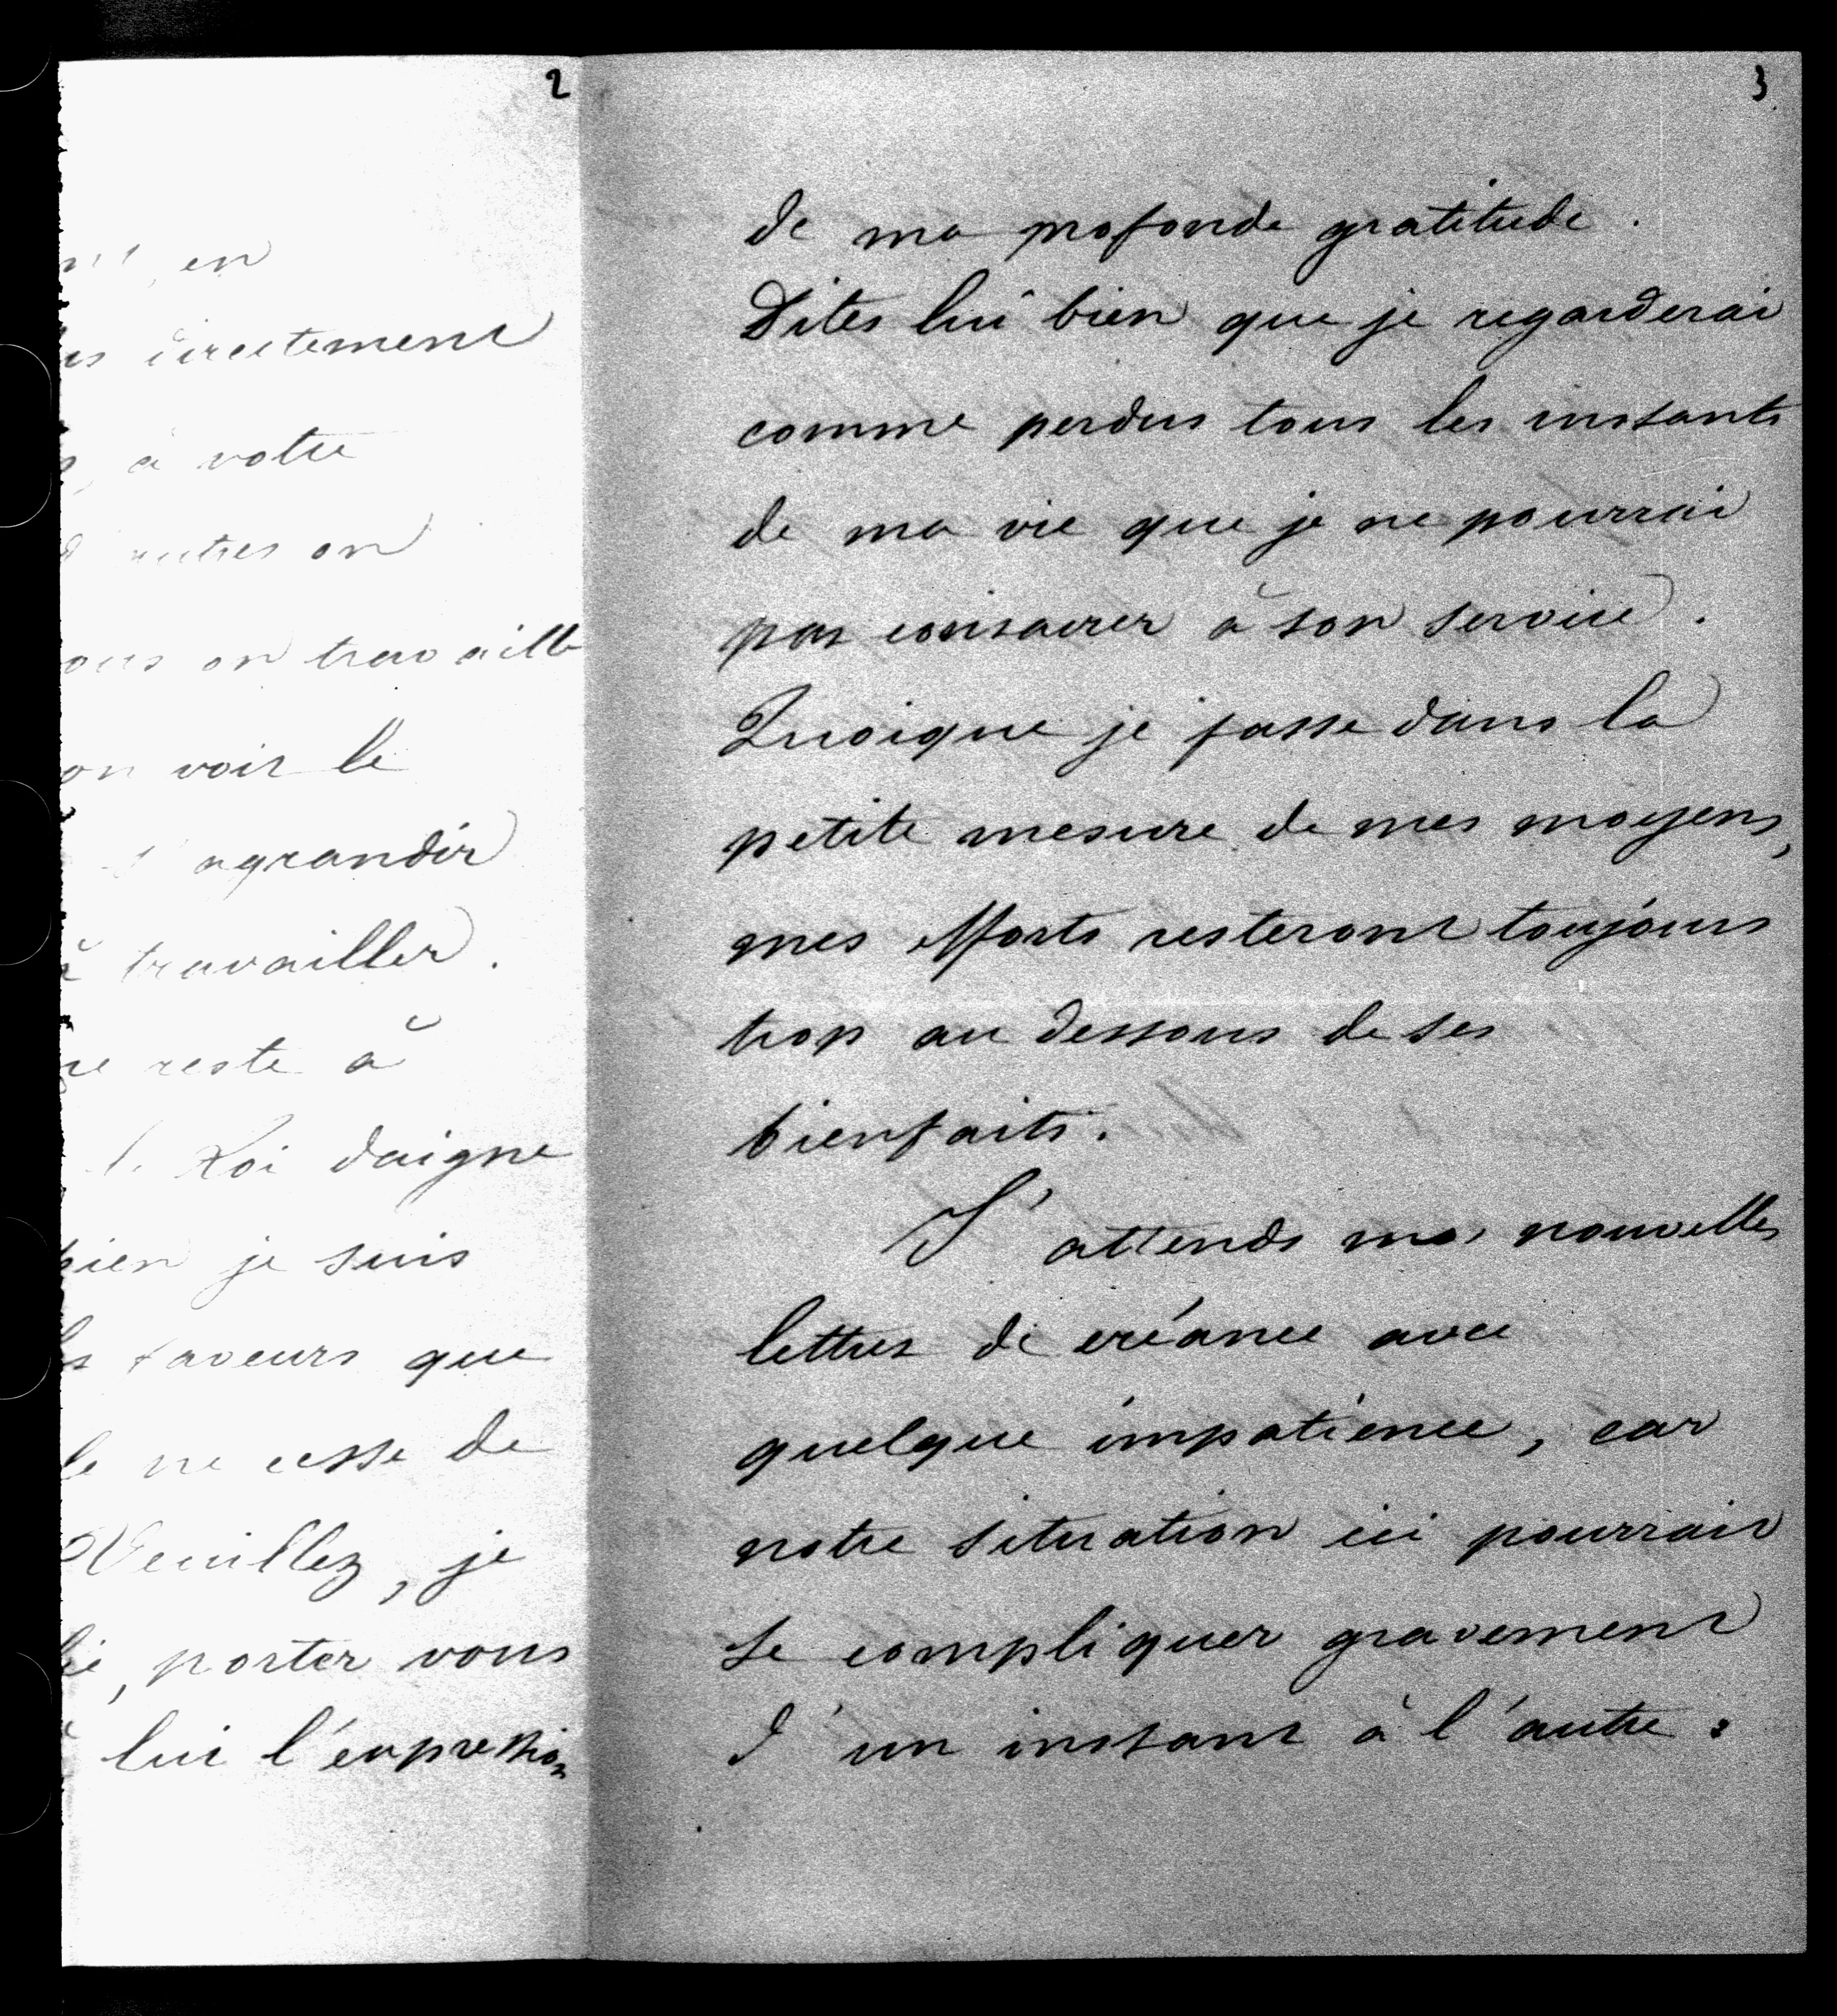 2
en
directement
à votre
autres on
on travaille
on voir le
agrandir
à travailler.
reste à
Roi daigne
bien je suis
faveurs que
ne cesse de
Veuillez, je
porter vous
lui l'expression
3
de ma profonde gratitude.
Dites lui bien que je regarderai
comme perdus tous les instants
de ma vie que je ne pourrai
pas consacrer à son service.
Quoique je fasse dans la
petite mesure de mes moyens,
mes efforts resteront toujours
trop au dessous de ses
bienfaits.
J'attends mes nouvelles
lettres de créance avec
quelque impatience, car
notre situation ici pourrait
se compliquer gravement
d'un instant à l'autre: